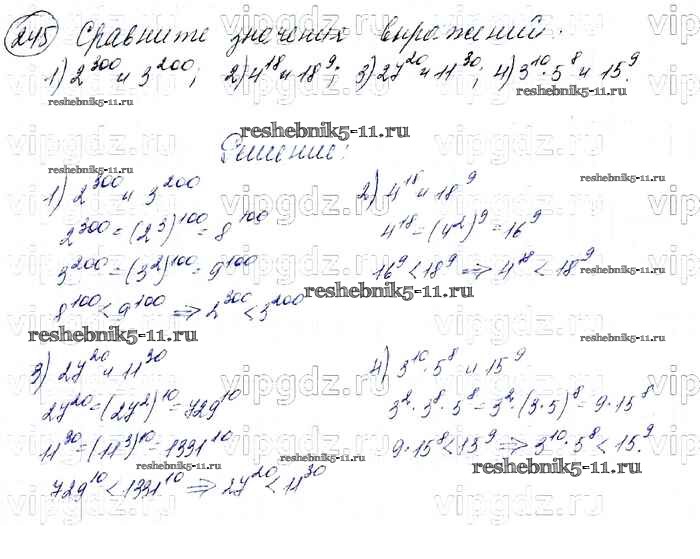 245 Сравните значения выражений:
1) 2^300 и 3^200; 2) 4^18 и 18^9; 3) 27^20 и 11^30; 4) 3^10 · 5^8 и 15^9.
reshebnik5-11.ru
Решение:
1) 2^300 и 3^200
2^300 = (2^3)^100 = 8^100
3^200 = (3^2)^100 = 9^100
8^100 < 9^100 ⟹ 2^300 < 3^200
2) 4^18 и 18^9
4^18 = (4^2)^9 = 16^9
16^9 < 18^9 ⟹ 4^18 < 18^9
3) 27^20 и 11^30
27^20 = (27^2)^10 = 729^10
11^30 = (11^3)^10 = 1331^10
729^10 < 1331^10 ⟹ 27^20 < 11^30
4) 3^10 · 5^8 и 15^9
3^2 · 3^8 · 5^8 = 3^2 · (3 · 5)^8 = 9 · 15^8
9 · 15^8 < 15^9 ⟹ 3^10 · 5^8 < 15^9.
vipgdz.ru